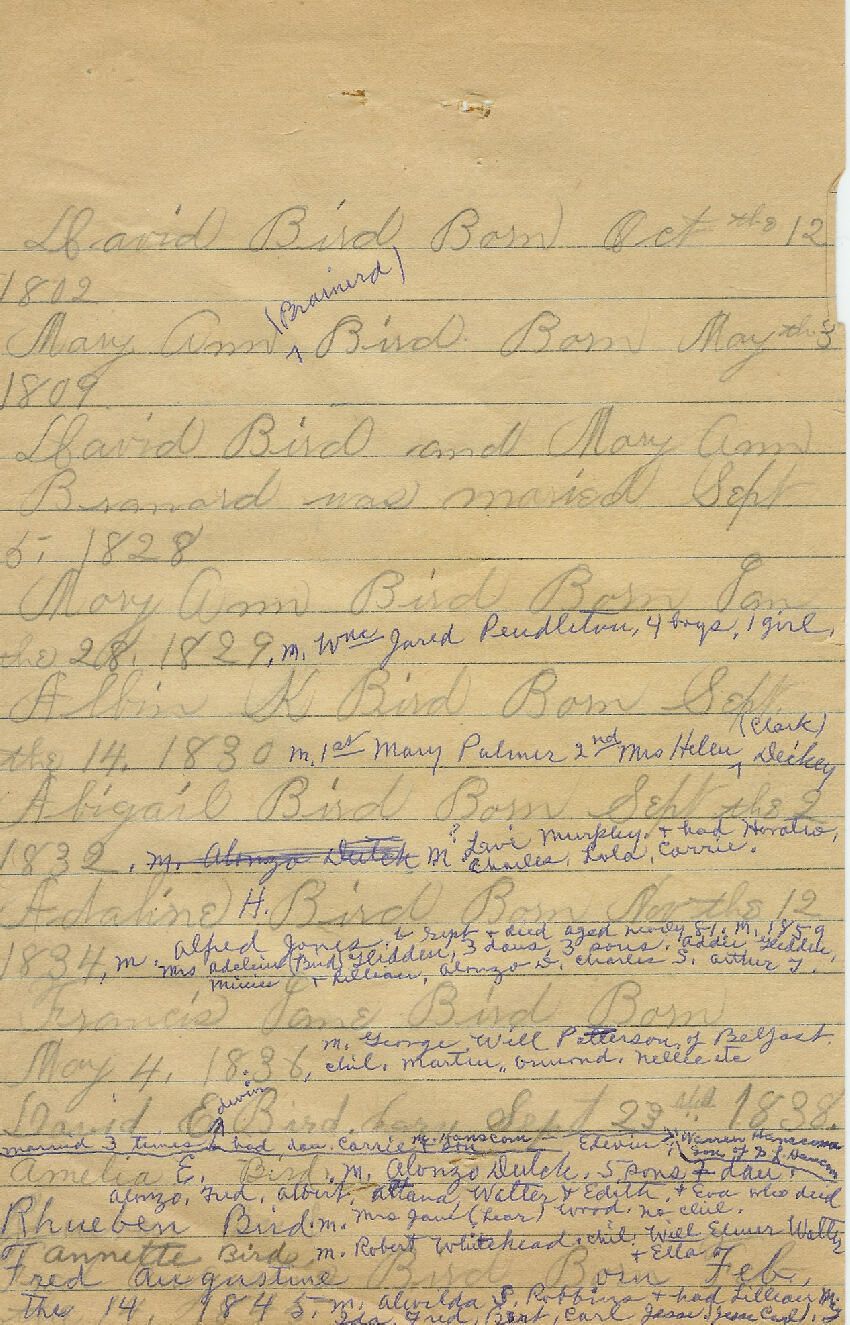 David Bird Born Oct the 12
1802
(Brainerd)
Mary Ann ^ Bird. Born May the 3
1809
David Bird and Mary Ann
Branard was maried Sept
5, 1828
Mary Ann Bird Born Jan
the 28, 1829, m. Wm Jared Pendleton, 4 boys, 1 girl,
Albin K Bird Born Sept.
(Clark)
the 14, 1830 m. 1st Mary Palmer 2nd Mrs Helen ^ Dickey
Abigail Bird Born Sept the 2
1832, m. Alonzo Dutch M? Levi Murphy. & had Horatio,
Charles, Lola, Carrie.
Adaline H. Bird Born Nov the 12
1834, m. Alfred Jones. 6 Sept & died aged nearly 81. M. 1859
Mrs Adeline (Bird) Glidden, 3 daus, 3 sons. Addie Glidden,
Minnie & Lillian, Alonzo D. Charles S. Arthur T.
Francis Jane Bird Born
May 4, 1836, m. George Will Patterson of Belfast.
chil. Martin, Ormond, Nellie etc
Edwin
David E Bird. Sept 23 1838.
married 3 times & had dau. Carrie m. Hanscom Warren Hanscom
son of
Amelia E. Bird. m. Alonzo Dutch. 5 sons & dau.
Alonzo, Fred, Albert, Walter & Edith, & Eva who died
Rhueben Bird. m. Mrs Jane (Lear) Wood. no chil.
Jannette Bird m. Robert Whitehead. chil. Will Elmer Walter
& Ella
Fred Augustine Bird Born Feb,
the 14, 1845. m. Alwilda S. Robbins & had Lillian
Ida, Fred, Bert, Carl Jesse (Jesse Carl)